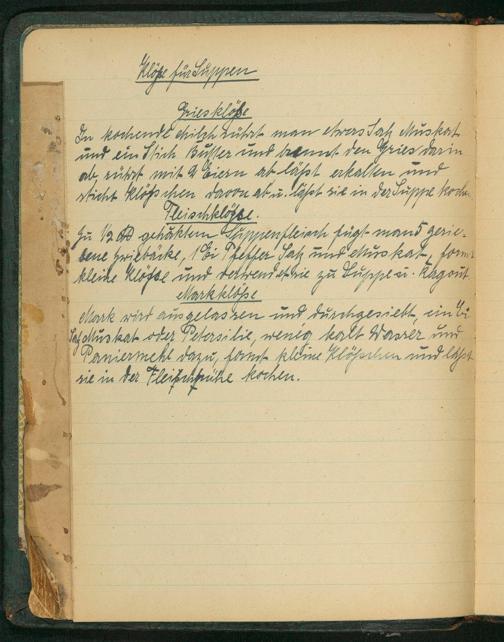 Klöße für Suppen
Griesklöße
In kochende Milch rührt man etwas Salz Muskat
und ein Stich Butter und brennt den Gries darin
ab, rührt mit 2 Eiern ab läßt erkalten und
sticht Klößchen davon ab u. läßt sie in der Suppe koch
Fleischklöße.
Zu 1/2 ℔ gehakten Suppenfleisch fügt man 3 gerie-
bene Zwiebäcke, 1 Ei Pfeffer Salz und Muskat, formt
kleine Klöße und verwendet sie zu Suppe u. Ragout
Markklöße
Mark wird ausgelassen und durchgesiebt, ein Ei
Salz Muskat oder Petersilie, wenig kalt Wasser und
Paniermehl dazu, formt kleine Klößchen und läßt
sie in der Fleischbrühe kochen.